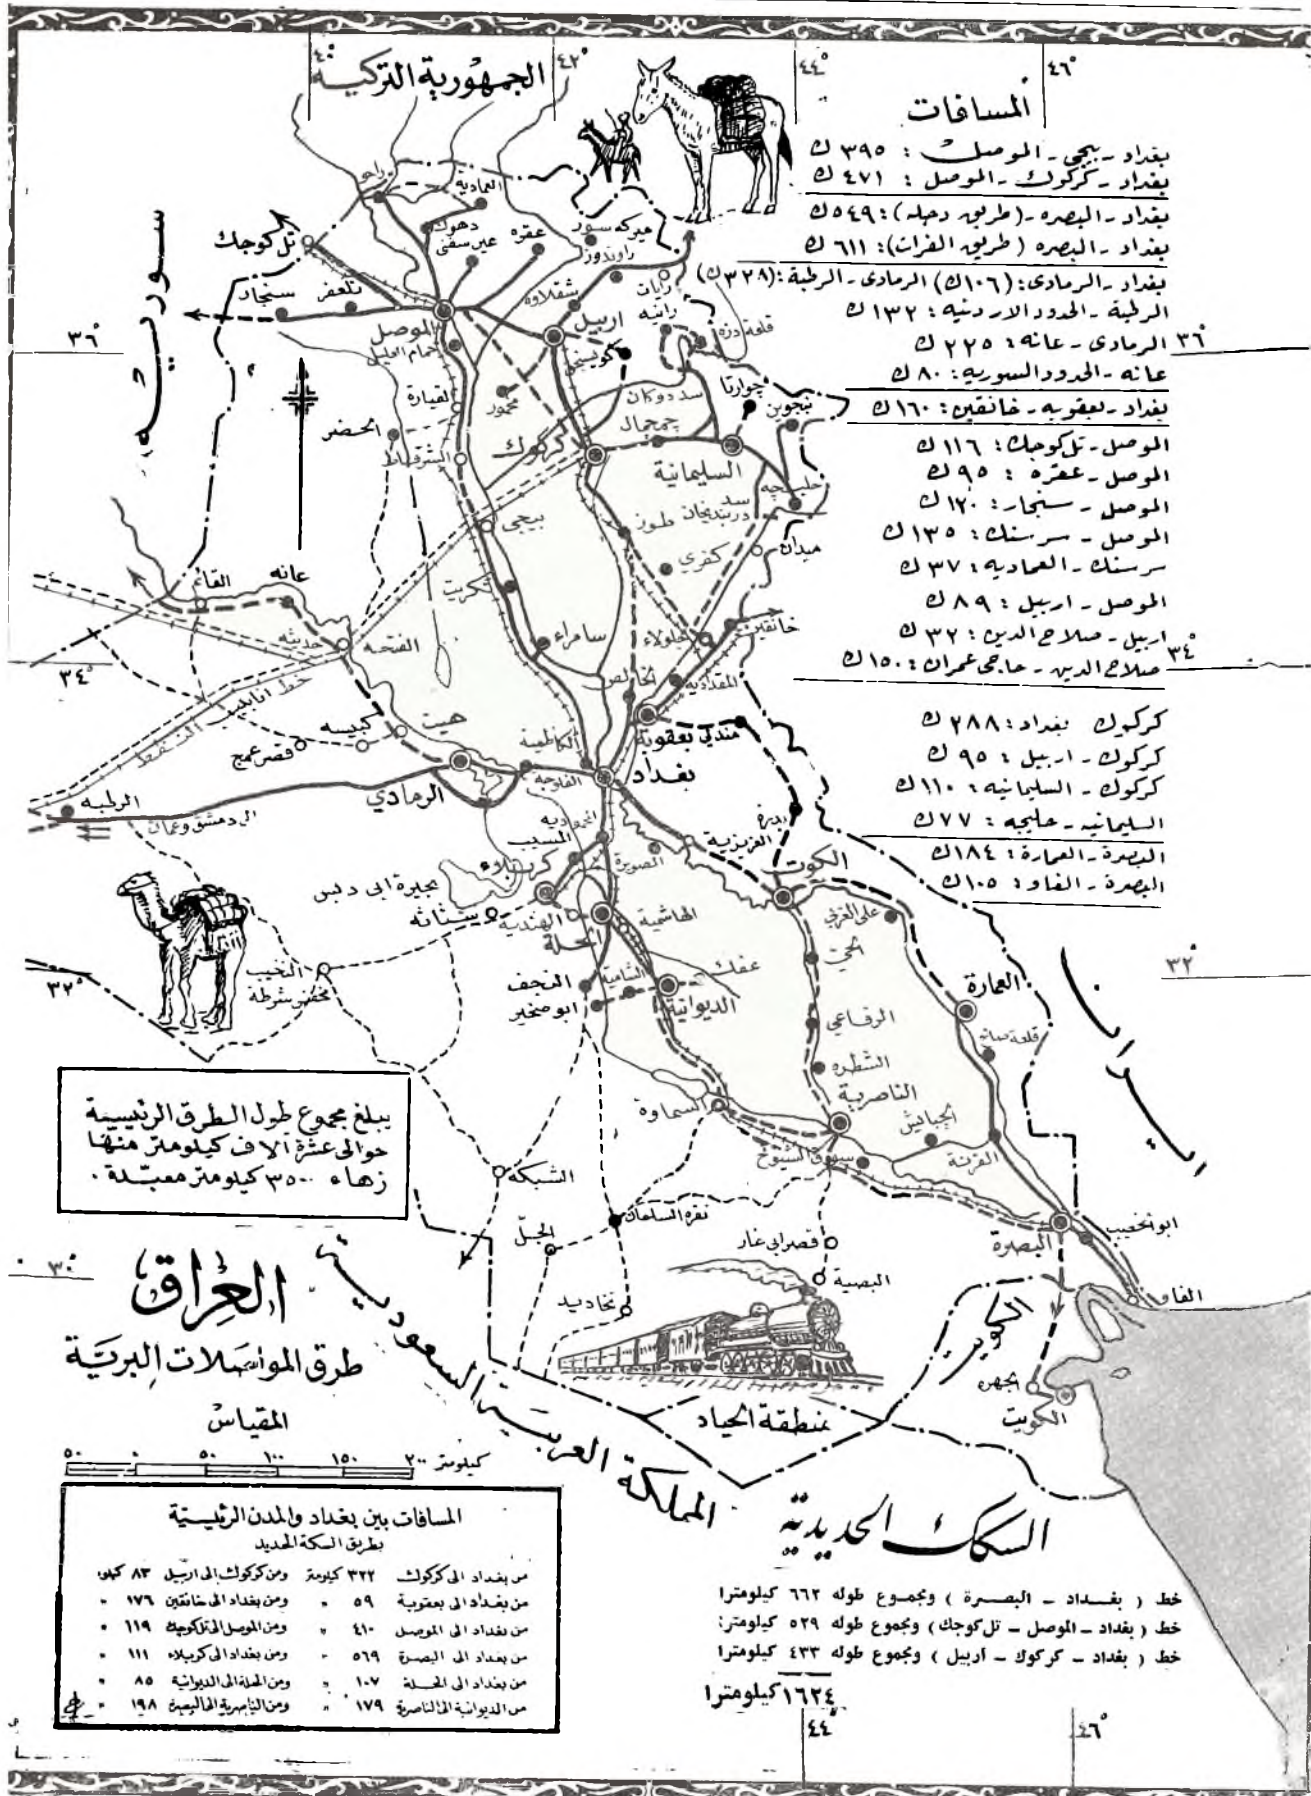 ٤٠°
٤٢°
٤٤°
٤٦°
الجمهورية التركية
المسافات
بغداد - بيجي - الموصل : ٣٩٥ ك
بغداد - كركوك - الموصل : ٤٧١ ك
بغداد - البصره - (طريق دجله) : ٥٤٩ ك
بغداد - البصره (طريق الفرات) : ٦١١ ك
بغداد - الرمادى : (١٠٦ ك) الرمادى - الرطبة : (٣٢٨ ك)
الرطبة - الحدود الاردنيه : ١٣٢ ك
الرمادى - عانه : ٢٢٥ ك
عانه - الحدود السوريه : ٨٠ ك
بغداد - بعقوبه - خانقين : ١٦٠ ك
الموصل - تل كوجك : ١١٦ ك
الموصل - عقره : ٩٥ ك
الموصل - سنجار : ١٢٠ ك
الموصل - سرسنك : ١٣٥ ك
سرسنك - العماديه : ٣٧ ك
الموصل - اربيل : ٨٩ ك
اربيل - صلاح الدين : ٣٢ ك
صلاح الدين - حاجى عمران : ١٥٠ ك
كركوك بغداد : ٢٨٨ ك
كركوك - اربيل : ٩٥ ك
كركوك - السليمانيه : ١١٠ ك
السليمانيه - حلبجه : ٧٧ ك
البصرة - العمارة : ١٨٤ ك
البصرة - الفاو : ١٠٥ ك
٣٦°
٣٦°
٣٤°
٣٤°
٣٢°
٣٢°
٣٠°
سوريه
ايران
زاخو
العمادية
دهوك
عين سفني
عقره
ميركه سور
راوندوز
تل كوجك
رايات
رانيه
قلعة دزه
شقلاوه
سنجار
تلعفر
الموصل
حمام العليل
اربيل
كويسنجق
القيارة
مخمور
سد دوكان
چوارتا
بنجوين
الحضر
الشرقاط
كركوك
جمجمال
السليمانية
حلبچه
سد دربنديخان
طوز
بيجي
كفري
ميدان
تكريت
القائم
عانه
حديثه
الفتحه
سامراء
جلولاء
خانقين
الخالص
المقداديه
خط انابيب النفط
هيت
كبيسه
قصر عمج
مندلي
بعقوبة
الكاظمية
بغداد
الفلوجه
الرمادي
الرطبه
الى دمشق وعمان
المحموديه
المسيب
الصويرة
العزيزية
بدره
الكوت
كربلاء
بحيرة ابى دبس
شثاثه
الهندية
الحلة
الهاشمية
علي الغربي
الحي
النخيب
مخفر شرطة
النجف
ابو صخير
الشامية
عفك
الديوانية
العمارة
الرفاعي
قلعة صالح
الشطره
الناصرية
السماوة
الجبايش
القرنة
سوق الشيوخ
الشبكه
نقرة السلمان
الجلّ
قصر ابي غار
البصية
نخاديد
البصرة
ابو الخصيب
الفاو
الكويت
الجهره
الكويت
منطقة الحياد
المملكة العربية السعودية
يبلغ مجموع طول الطرق الرئيسية
حوالى عشرة آلاف كيلومتر منها
زهاء ٣٥٠٠ كيلومتر معبّدة .
العراق
طرق المواصلات البرية
المقياس
٥٠ ٠ ٥٠ ١٠٠ ١٥٠ ٢٠٠ كيلومتر
المسافات بين بغداد والمدن الرئيسية
بطريق السكة الحديد
من بغداد الى كركوك ٣٢٢ كيلومتر ومن كركوك الى اربيل ٨٣ كيلو
من بغداد الى بعقوبة ٥٩ " ومن بغداد الى خانقين ١٧٦ "
من بغداد الى الموصل ٤١٠ " ومن الموصل الى تل كوجك ١١٩ "
من بغداد الى البصرة ٥٦٩ " ومن بغداد الى كربلاء ١١١ "
من بغداد الى الحلة ١٠٧ " ومن الحلة الى الديوانية ٨٥ "
من الديوانية الى الناصرية ١٧٩ " ومن الناصرية الى البصرة ١٩٨ "
السكك الحديدية
خط ( بغداد - البصرة ) ومجموع طوله ٦٦٢ كيلومترا
خط ( بغداد - الموصل - تل كوجك ) ومجموع طوله ٥٢٩ كيلومترا
خط ( بغداد - كركوك - أربيل ) ومجموع طوله ٤٣٣ كيلومترا
١٦٢٤ كيلومترا
٤٤°
٤٦°